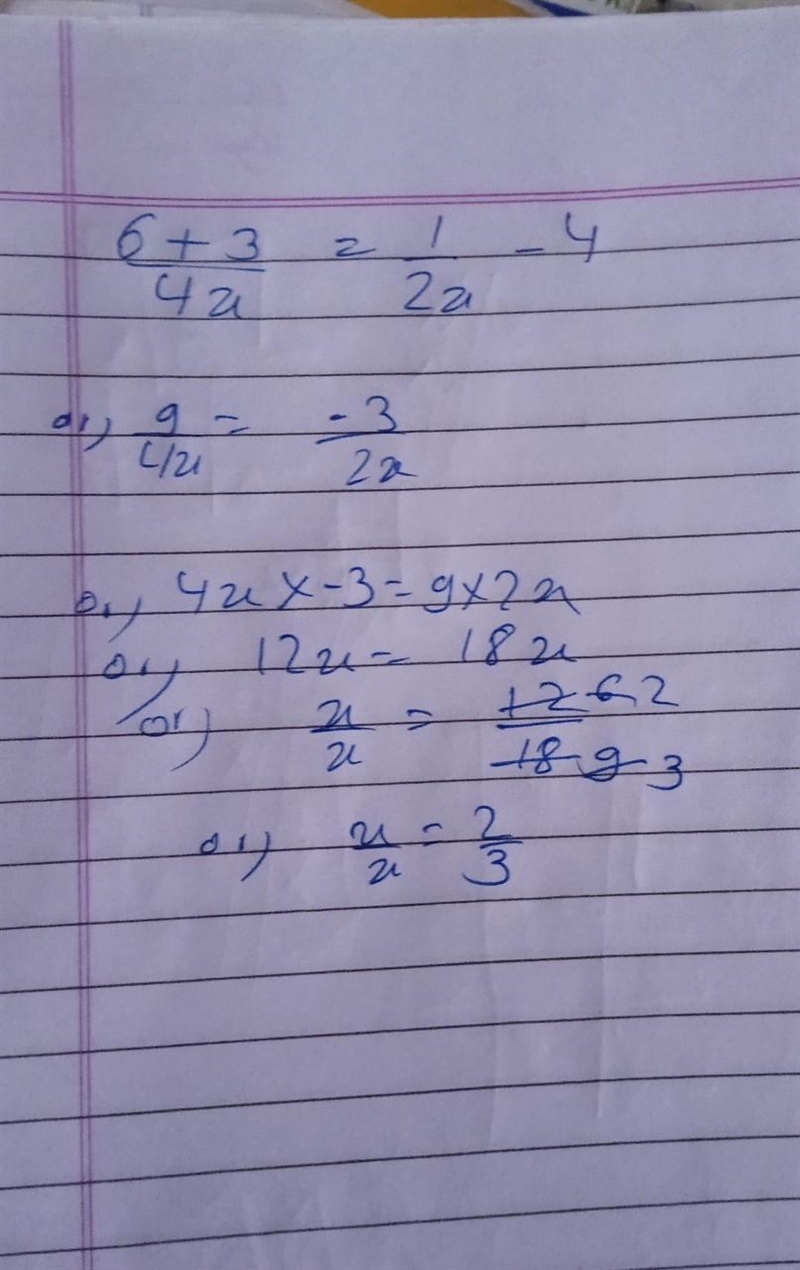 6+3/4x = 1/2x - 4
or) 9/4x = -3/2x
or) 4x × -3 = 9×2x
or) 12x = 18x
or) x/x = 12 6 2/18 9 3
or) x/x = 2/3